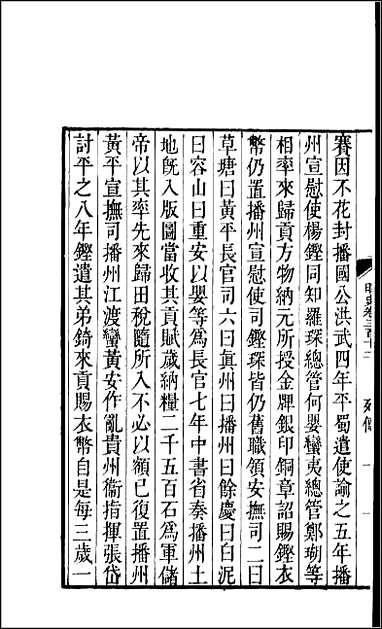 賽因不花封播國公洪武四年平蜀遣使諭之五年播
州宣慰使楊鏗同知羅琛總管何嬰蠻夷總管鄭瑚等
相率來歸貢方物納元所授金牌銀印銅章詔賜鏗衣
幣仍置播州宣慰使司鏗琛皆仍舊職領安撫司二曰
草塘曰黃平長官司六曰眞州曰播州曰餘慶曰白泥
曰容山曰重安以嬰等爲長官七年中書省奏播州土
地旣入版圖當收其貢賦歲納糧二千五百石爲軍儲
帝以其率先來歸田稅隨所入不必以額已復置播州
黃平宣撫司播州江渡蠻黃安作亂貴州衞指揮張岱
討平之八年鏗遣其弟錡來貢賜衣幣自是每三歲一
明史卷三百十二
列傳